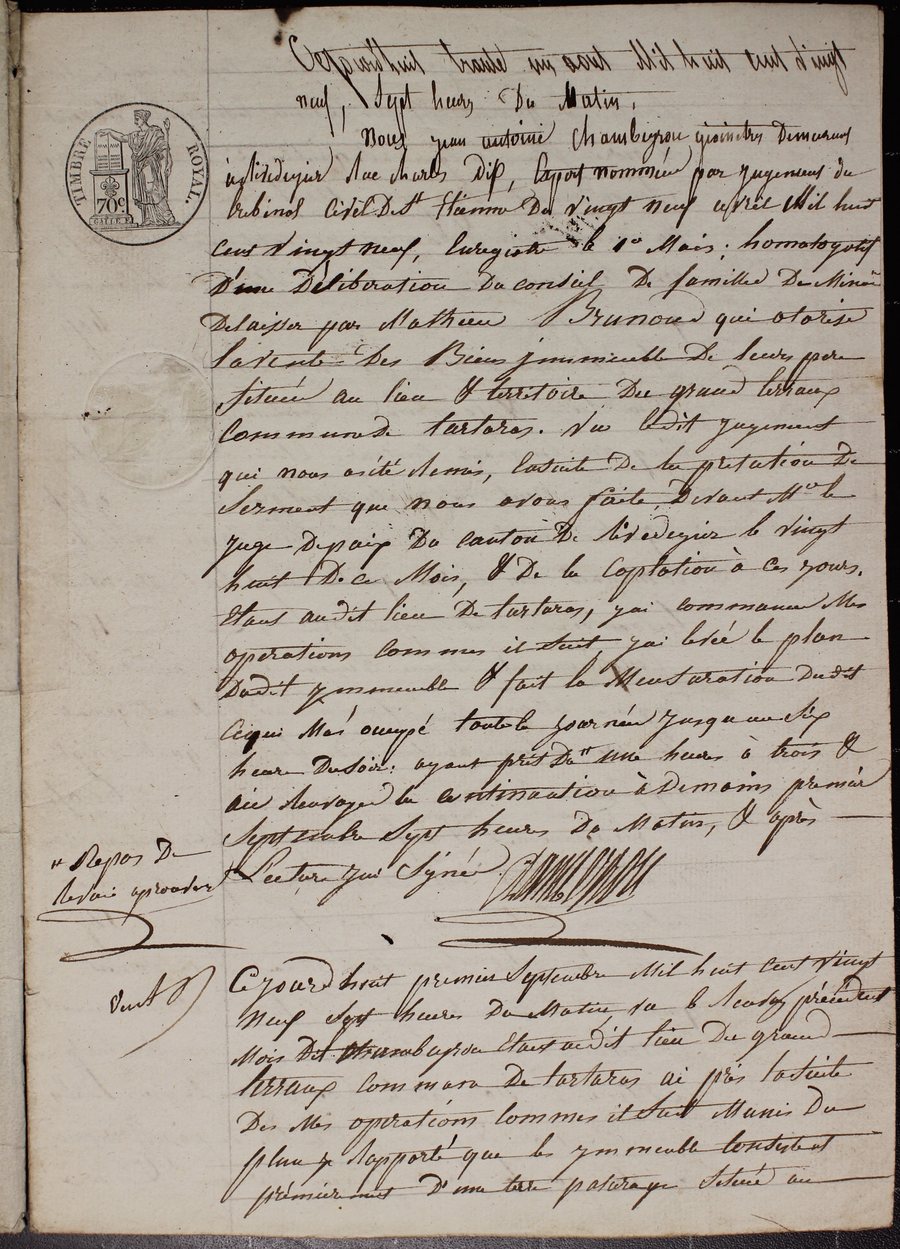 Cejourd'huit trante un aout Mil huit cent vingt
neuf, Sept heures Du Matin,
TIMBRE ROYAL.
70c
Nous jean antoine Chambeyron géomètre Demeurant
à rivedegier Rue charles Dix, Expert nommée par jugement du
tribinal Civil De St Etienne Du vingt neuf avril Mil huit
cent vingt neuf, Enregistré le 1er Mais, homologatif
D'une Déliberation Du conseil De famille De Mineur
Delaisser par Mathieu Brunoud qui otorise
la vente Des Biens jmmeuble De leurs pere
Située au lieu & territoire Du grand terraux
Commune De tartaras. Vu ledit jugement
qui nous a été Remis, Ensuite De la prétation De
Serment que nous avons faite, Devant Mr le
juge Depaix Du canton De Rivedegier le vingt
huit De ce Mois, & De la Captation à ces jours.
Etant audit lieu De tartaras, j'ai commancé Mes
operations commes il Suit, j'ai levée le plan
Dudit ymmeuble & fait la Mensuration Dudit
Cequi Mas ocupé toute la journée jusqu au Six
heure Du soir: ayant pris Du " une heures à trois &
ai Renvoyer la continuation à Demains premier
Septembre Sept heures Du Matin, & après
" Repos De
Lecture j'ai Signé Chambeyron
Renvoi aprouvée
Ce jourd'huit premier Septembre Mil huit cent vingt
neuf Sept heures Du Matin vu le Renvoy précédent
Mois Dit Chambeyron Etant audit lieu Du grand
terraux commune De tartaras ai près la Suite
Des Mes operations Commes il Suit Munis Du
plan j'e Rapporté que les ymmeuble Consistent
prémierement D'une terre paturage Située au